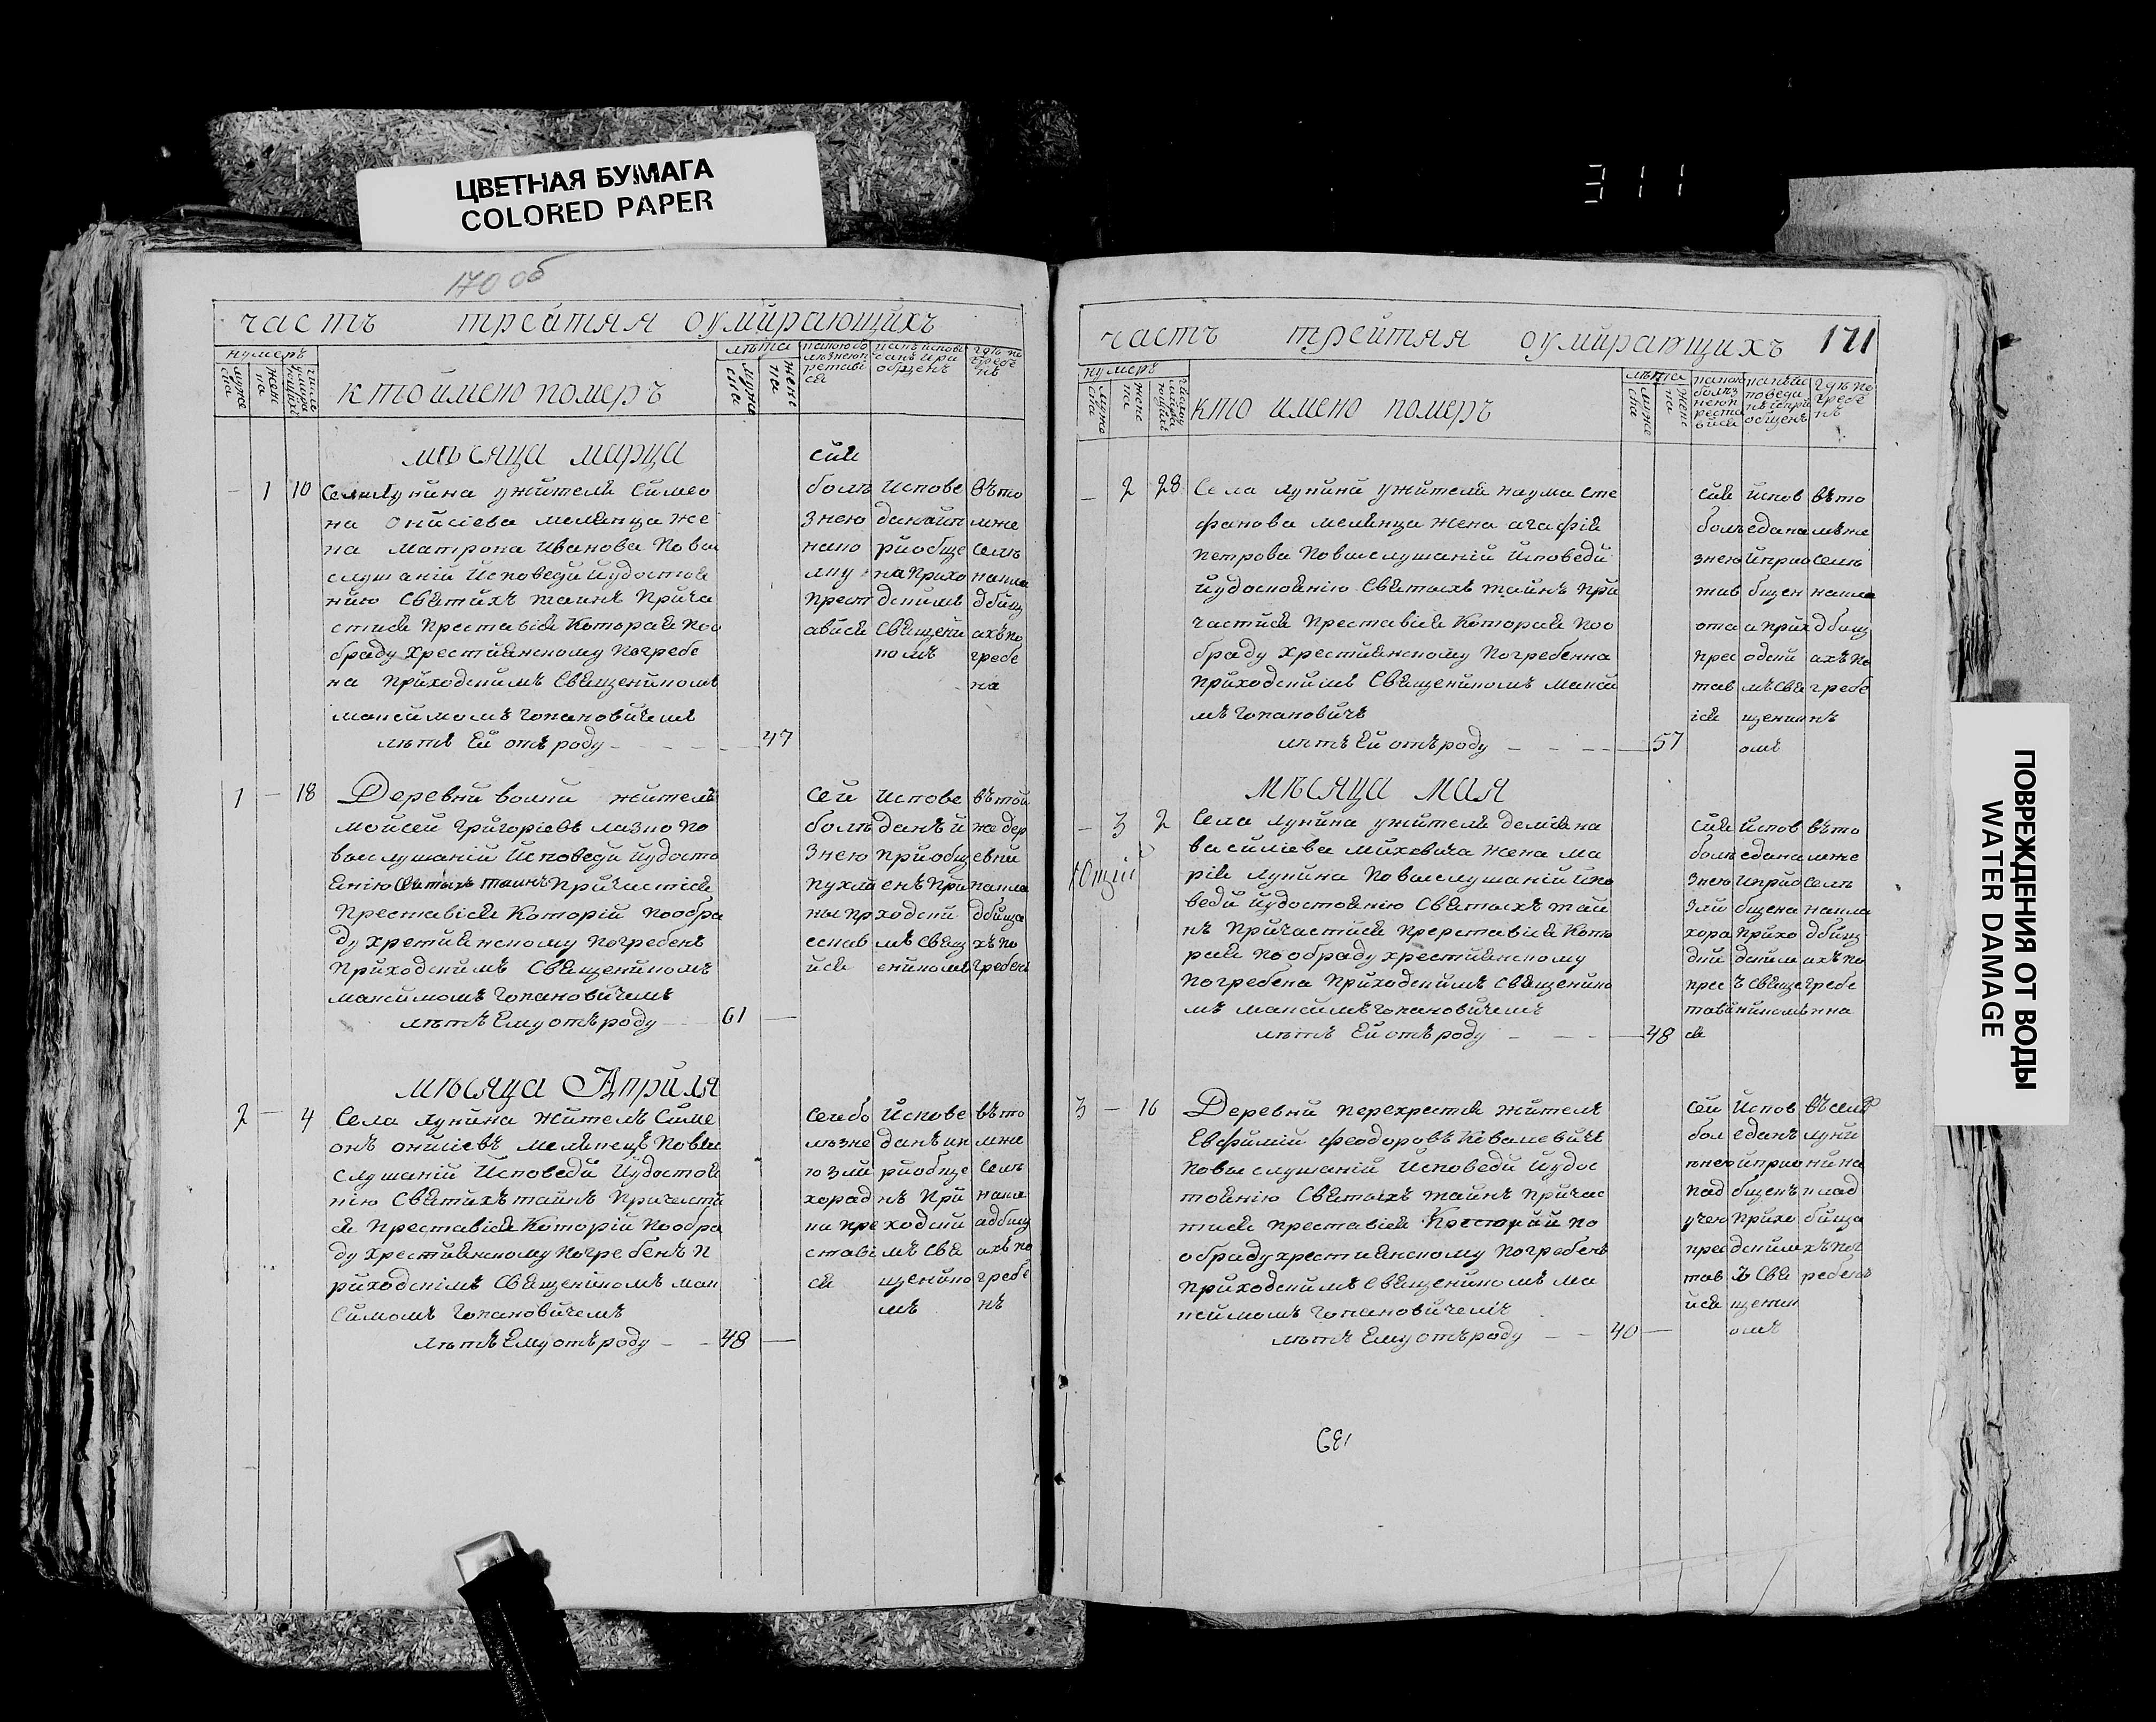 ЦВЕТНАЯ БУМАГА
COLORED PAPER
311
170 об
часть третия оумирающихъ
нумеръ
кто имено померъ
лѣта
мѣсяца марца
1 10 Села Лунина ужителя Симео
на Онисіева мелянца же
на Матрона Иванова повы
слушаній Исповеди йудостоя
нию Святихъ таинъ Прича
стися преставися Которая поо
браду хрестиянскому погребе
на приходскимъ Священикомъ
максимомъ Гопановичемъ
лѣтъ Ей отъ роду 47
сия
болѣ
знею
прест
ависа
Испове
дана ип
риобще
на прихо
дскимъ
священи
комъ
вѣто
мже
селѣ
накла
дбищ
ахъ по
гребе
на
1 18 Деревни волки жителъ
мойсей Григоріевъ лазко по
выслушаній Исповеди йудосто
янію святыхъ таинъ Причастися
Преставися Которій пообра
ду хретиянскому погребенъ
приходскимъ Священикомъ
максимомъ Гопановичемъ
лѣтъ Ему отъ роду 61
сей
болѣ
знею
пухли
ны пр
естав
ися
Испове
данъ и
приобщ
енъ при
ходски
мъ свящ
еникомъ
вѣтой
же дер
евни
накла
дбища
хъ по
гребенъ
мѣсяца Априля
2 4 Села Лунина жителъ Симе
онъ онисіевъ мелянецъ повы
слушаній Исповеди йудостоя
нію Святихъ таинъ Причасти
ся преставися Которій пообра
ду хрестиянскому погребенъ п
риходскімъ Священікомъ мак
симомъ Гопановичемъ
лѣтъ Ему отъ роду 48
сей бо
лѣзне
ю зли
хорад
ка пре
стави
ся
Испове
данъ ип
риобще
нъ при
ходски
мъ свя
щенико
мъ
вѣто
мже
селѣ
накл
адбищ
ахъ по
гребе
нъ
часть третия оумирающихъ 171
нумеръ
кто имено померъ
лѣта
2 28 Села Лунина ужителя наума сте
фанова мелянца жена агафія
петрова повыслушаній Исповеди
йудостоянію Святыхъ тайнъ при
частися преставися Которая поо
браду хрестиянскому погребенна
приходскимъ Священикомъ макси
мъ Гопановичъ
лѣтъ Ей отъ роду 57
сия
болѣ
знею
жив
ота
прес
тав
іся
испов
едана
йприо
бщен
а прих
одски
мъ свя
щеник
омъ
вѣто
мъже
селѣ
накла
дбищ
ахъ по
гребе
нъ
мѣсяца мая
3 2 Села Лунина ужителя деміяна
василіева михевича жена ма
рія Лукина повыслушаній Испо
веди йудостоянію Святыхъ тай
нъ Причастися преставися Кото
рая пообраду хрестиянскому
погребена приходскимъ священико
мъ максимъ гопановичемъ
лѣтъ Ей отъ роду 48
сия
болѣ
знею
зли
хора
дки
прес
тави
ся
испов
едана
иприо
бщена
прихо
дским
ъ свяще
никомъ
вѣто
мже
селѣ
накла
дбищ
ахъ по
гребе
нна
3 16 Деревни перехрестя жителъ
Евфимій феодоровъ Ковалевичъ
повыслушаній Исповеди йудос
тоянію Святыхъ тайнъ причас
тися преставися Которій по
обраду хрестиянскому погребенъ
приходскимъ священикомъ ма
ксимомъ гопановичемъ
лѣтъ Ему отъ роду 40
сей
бол
ѣнею
пад
учею
пре
тав
ися
испов
еданъ
йприо
бщенъ
прихо
дским
ъ свя
щеник
омъ
вѣ селѣ
луни
нина
клад
бища
хъ пог
ребенъ
139
ПОВРЕЖДЕНИЯ ОТ ВОДЫ
WATER DAMAGE